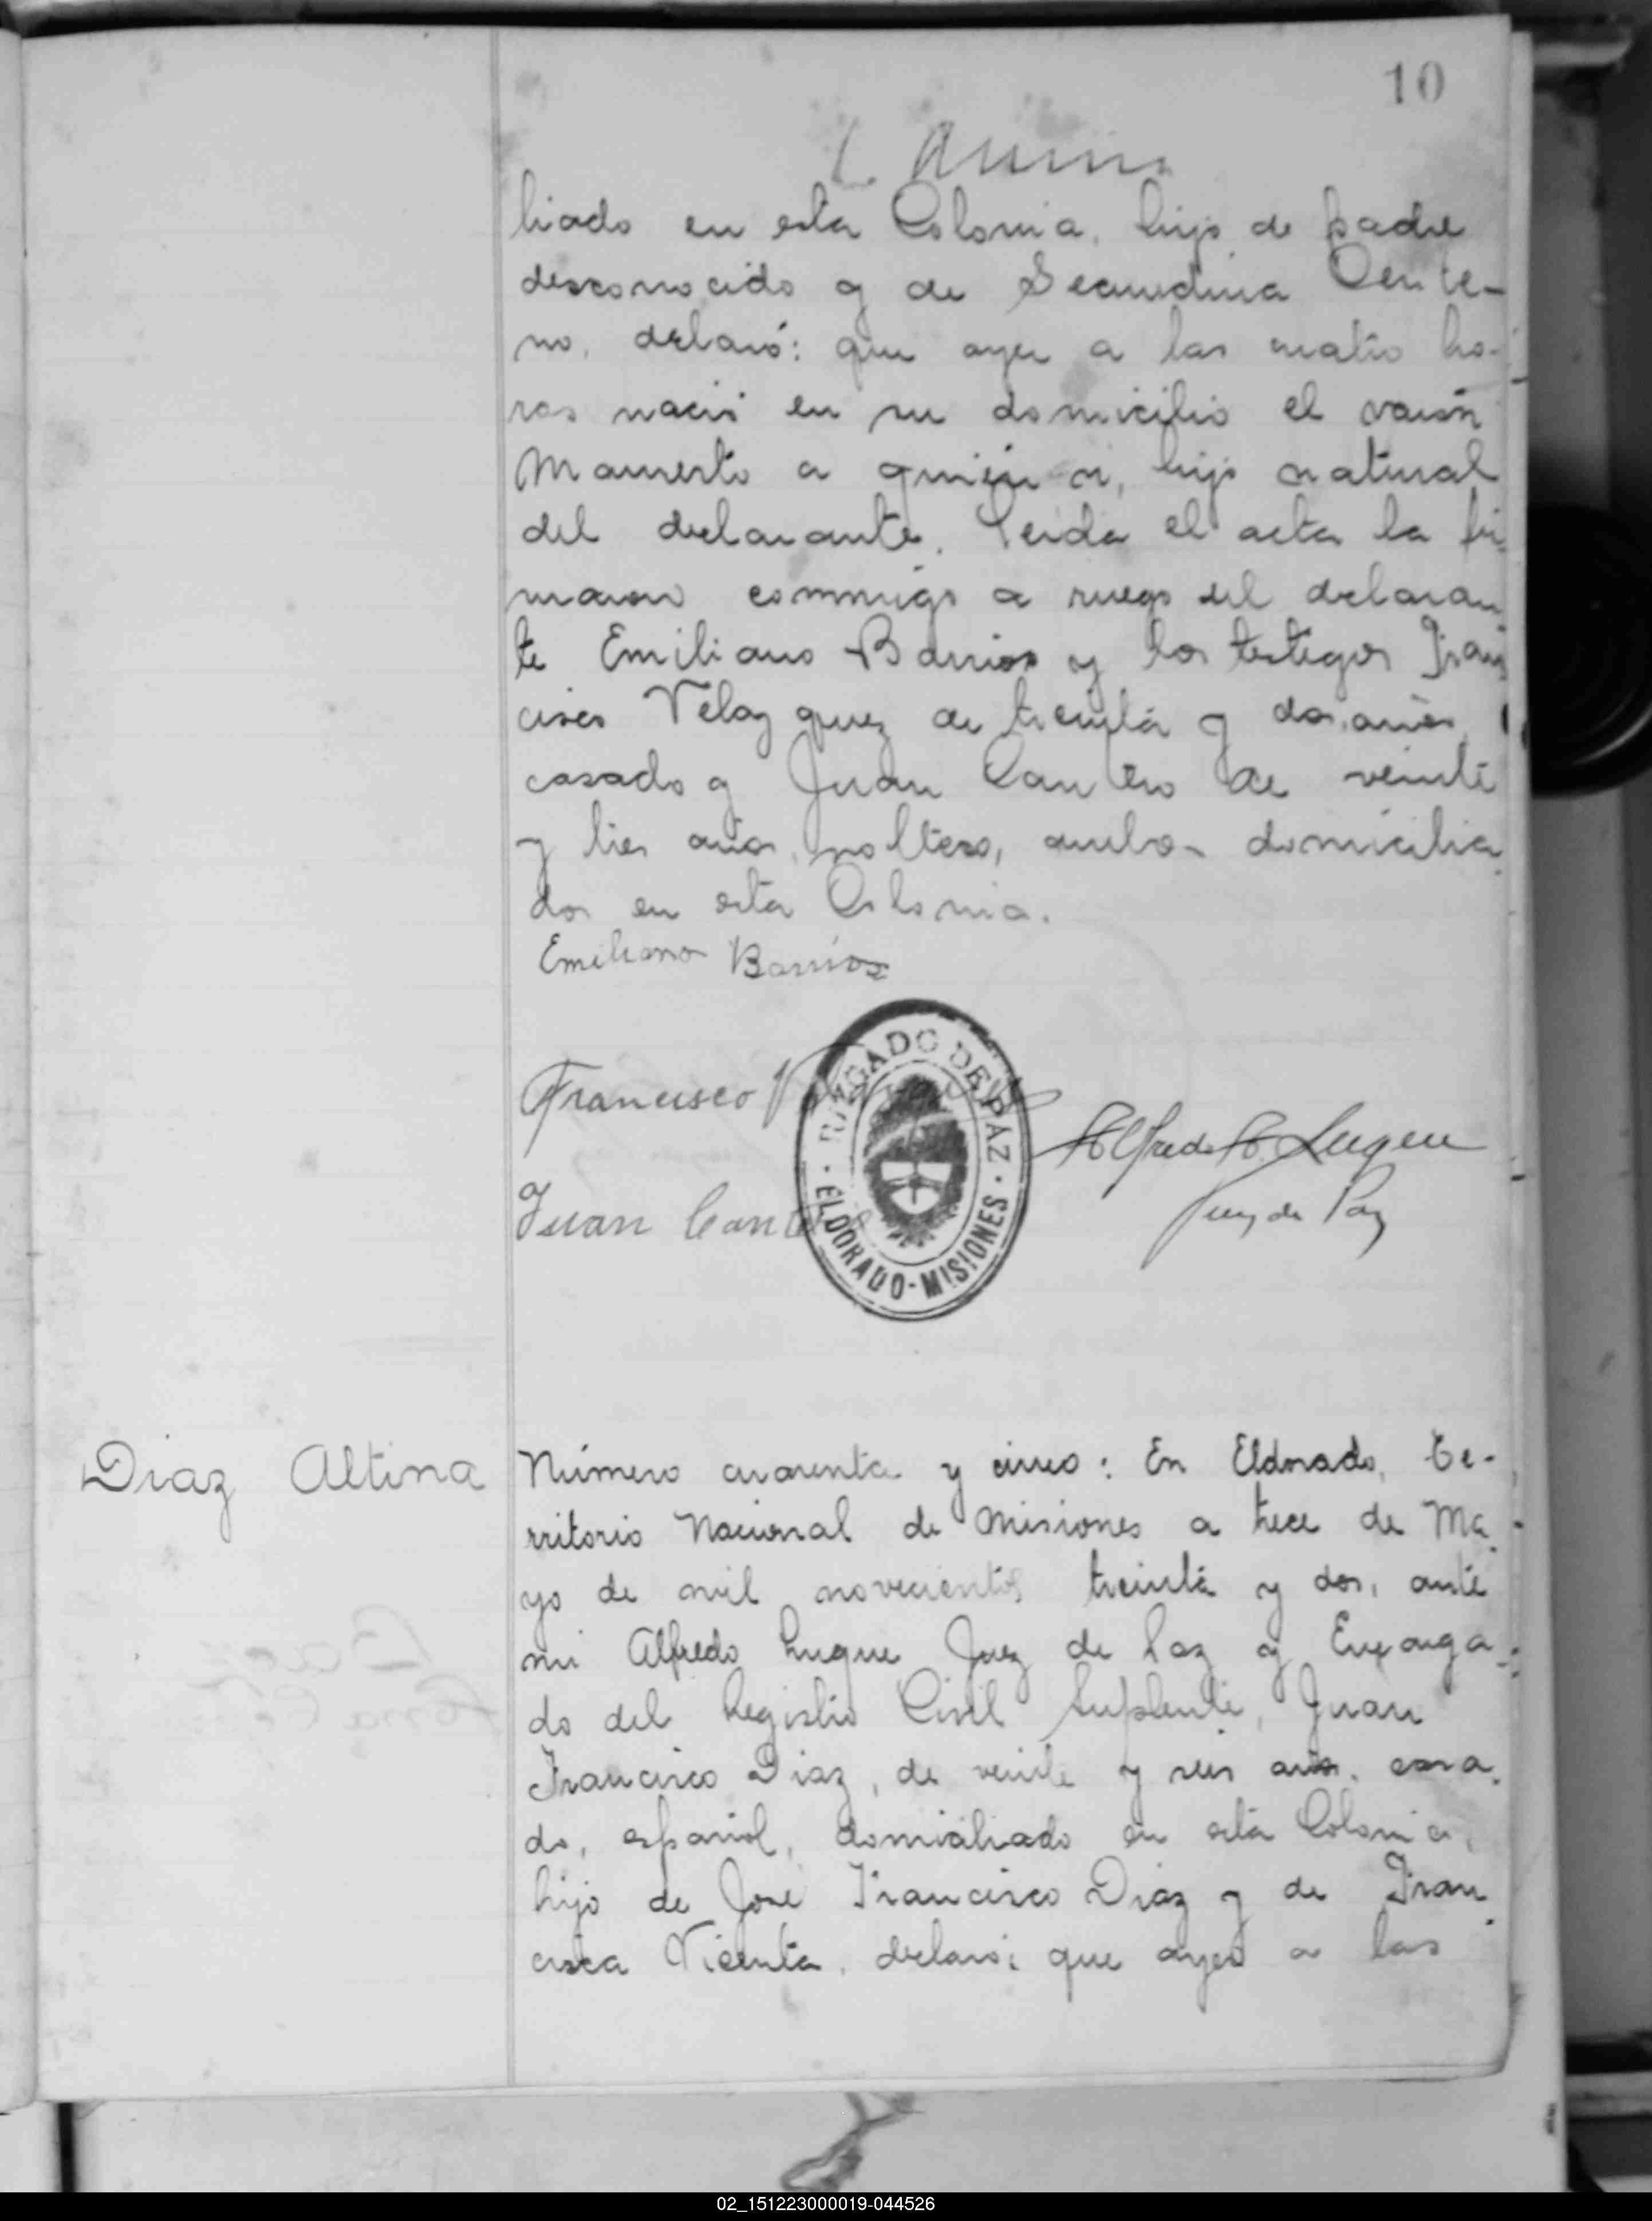 10
liado en esta Colonia, hijo de padre
desconocido y de Secundina Cente-
no, declaró: que ayer a las cuatro ho-
ras nació en su domicilio el varón
Mamerto a quién vi, hijo natural
del declarante. Leida el acta la fir
maron conmigo a ruego del declaran
te Emiliano Barrios y los testigos Fran
cisco Velazquez de treinta y dos años
casado y Juan Cantero de veinte
y tres años, soltero, ambos domicilia
dos en esta Colonia.
Emiliano Barrios
Francisco
JUZGADO DE PAZ
ELDORADO - MISIONES
Alfredo A. Luque
Juan Cantero
Juez de Paz
Diaz Altina
Número cuarenta y cinco: En Eldorado, Te-
rritorio Nacional de Misiones a trece de Ma
yo de mil novecientos treinta y dos, ante
mi Alfredo Luque Juez de Paz y Encarga
do del Registro Civil Suplente, Juan
Francisco Diaz, de veinte y seis años, casa
do, español, domiciliado en esta Colonia,
hijo de José Francisco Diaz y de Fran
cisca Vicenta, declaró: que ayer a las
02_151223000019-044526